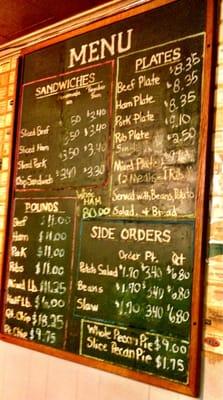 MENU
SANDWICHES
Sliced Beef 3.40
Sliced Ham 3.50 3.40
Sliced Pork 3.50 3.40
Chip Sandwich 3.30
POUNDS
Beef $11.00
Ham $11.00
Pork $11.00
Ribs $11.00
Mixed Lb. $11.25
Half Lb. $6.00
Qt. Chip $18.25
Pt. Chip $9.75
WHOLE
HAM
80.00
PLATES
Beef Plate $8.35
Ham Plate $8.35
Pork Plate $8.35
Rib Plate
Mixed Plate
(2 Meats
Served with Beans, Potato
Salad, & Bread
SIDE ORDERS
Order Pt. Qt.
Potato Salad $1.70 $3.40 $6.80
Beans $1.70 $3.40 $6.80
Slaw $1.70 3.40 $6.80
Whole Pecan Pie $9.00
Slice Pecan Pie $1.75